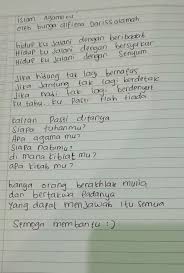 Islam Agamaku
oleh bunga difiena Darissalamah
hidup ku Jalani dengan beribadah
Hidup ku Jalani dengan bersyukur
Hidup ku Jalani dengan Senyum
Jika hidung tak lagi bernafas
Jika Jantung tak lagi berdetak
Jika nadi tak lagi berdenyut
ku tahu ku Pasti tlah tiada
kalian Pasti ditanya
Siapa tuhanmu?
Apa agama mu?
Siapa nabimu?
di mana kiblat mu?
apa kitab mu?
hanya orang berakhlak mulia
dan bertakwa Padanya
Yang dapat menJawab itu semua
Semoga membantu :)